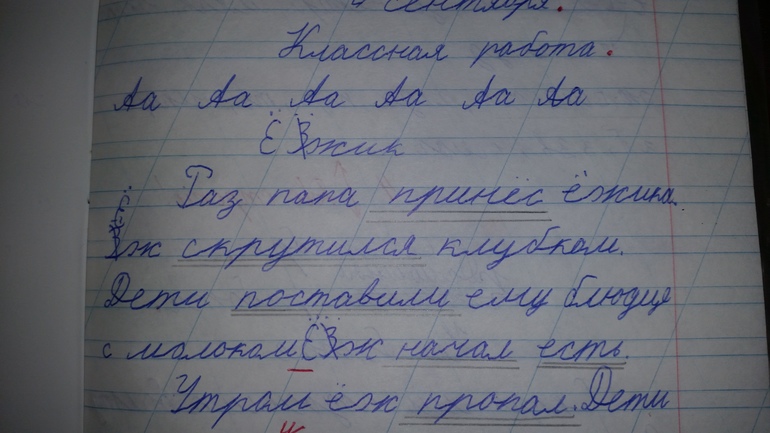 4 сентября.
Классная работа.
Аа Аа Аа Аа Аа Аа
Ёжик
Раз папа принёс ёжика.
Ёж скрутился клубком.
Дети поставили ему блюдце
с молоком Ёж начал есть.
Утром ёж пропал. Дети